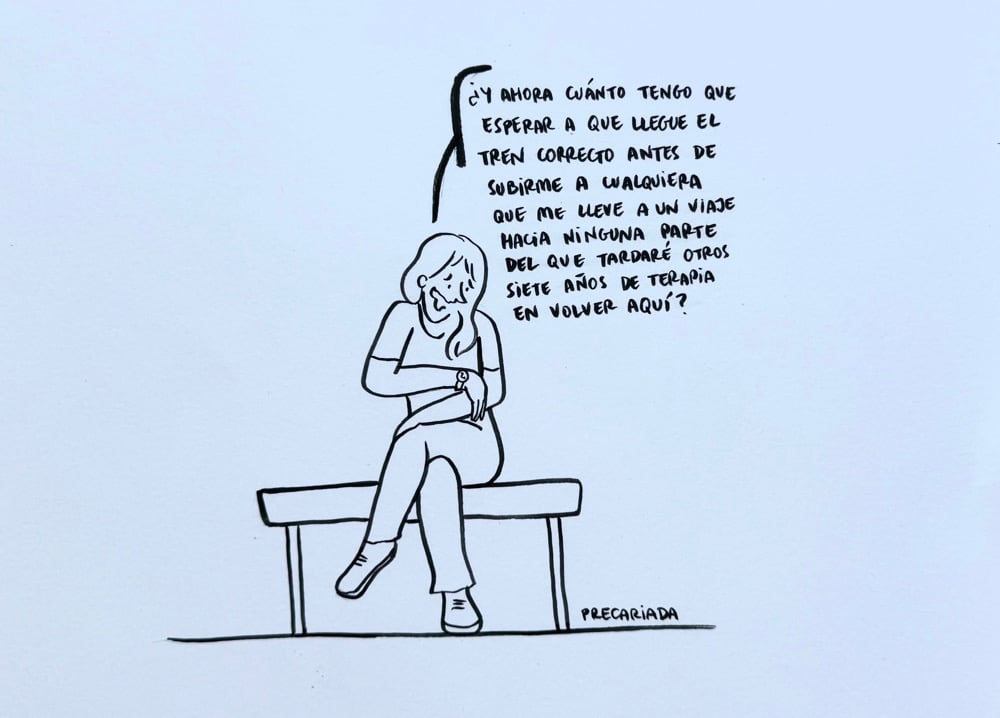 ¿Y AHORA CUÁNTO TENGO QUE
ESPERAR A QUE LLEGUE EL
TREN CORRECTO ANTES DE
SUBIRME A CUALQUIERA
QUE ME LLEVE A UN VIAJE
HACIA NINGUNA PARTE
DEL QUE TARDARÉ OTROS
SIETE AÑOS DE TERAPIA
EN VOLVER AQUÍ?
PRECARIADA